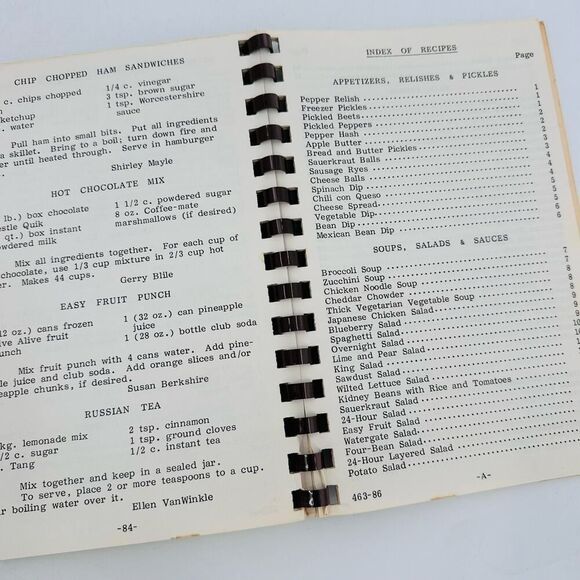 CHIP CHOPPED HAM SANDWICHES
c. chips chopped 1/4 c. vinegar
3 tsp. brown sugar
ketchup 1 tsp. Worcestershire
water sauce
Pull ham into small bits. Put all ingredients
skillet. Bring to a boil; turn down fire and
until heated through. Serve in hamburger
Shirley Mayle
HOT CHOCOLATE MIX
lb.) box chocolate 1 1/2 c. powdered sugar
Quik 8 oz. Coffee-mate
qt.) box instant marshmallows (if desired)
milk
Mix all ingredients together. For each cup of
chocolate, use 1/3 cup mixture in 2/3 cup hot
Makes 44 cups. Gerry Blile
EASY FRUIT PUNCH
oz.) cans frozen 1 (32 oz.) can pineapple
Alive fruit juice
1 (28 oz.) bottle club soda
Mix fruit punch with 4 cans water. Add pine-
juice and club soda. Add orange slices and/or
chunks, if desired.
Susan Berkshire
RUSSIAN TEA
lemonade mix 2 tsp. cinnamon
1/2 c. sugar 1 tsp. ground cloves
Tang 1/2 c. instant tea
Mix together and keep in a sealed jar.
To serve, place 2 or more teaspoons to a cup.
boiling water over it.
Ellen VanWinkle
-84-
INDEX OF RECIPES
Page
APPETIZERS, RELISHES & PICKLES
Pepper Relish 1
Freezer Pickles 1
Pickled Beets 1
Pickled Peppers 2
Pepper Hash 2
Apple Butter 2
Bread and Butter Pickles 3
Sauerkraut Balls 3
Sausage Ryes 4
Cheese Balls 4
Spinach Dip 4
Chili con Queso 5
Cheese Spread 5
Vegetable Dip 5
Bean Dip 6
Mexican Bean Dip 6
SOUPS, SALADS & SAUCES
Broccoli Soup 7
Zucchini Soup 7
Chicken Noodle Soup 8
Cheddar Chowder 8
Thick Vegetarian Vegetable Soup 8
Japanese Chicken Salad 9
Blueberry Salad 9
Spaghetti Salad
Overnight Salad
Lime and Pear Salad
King Salad
Sawdust Salad
Wilted Lettuce Salad
Kidney Beans with Rice and Tomatoes
Sauerkraut Salad
24-Hour Salad
Easy Fruit Salad
Watergate Salad
Four-Bean Salad
24-Hour Layered Salad
Potato Salad
463-86 -A-